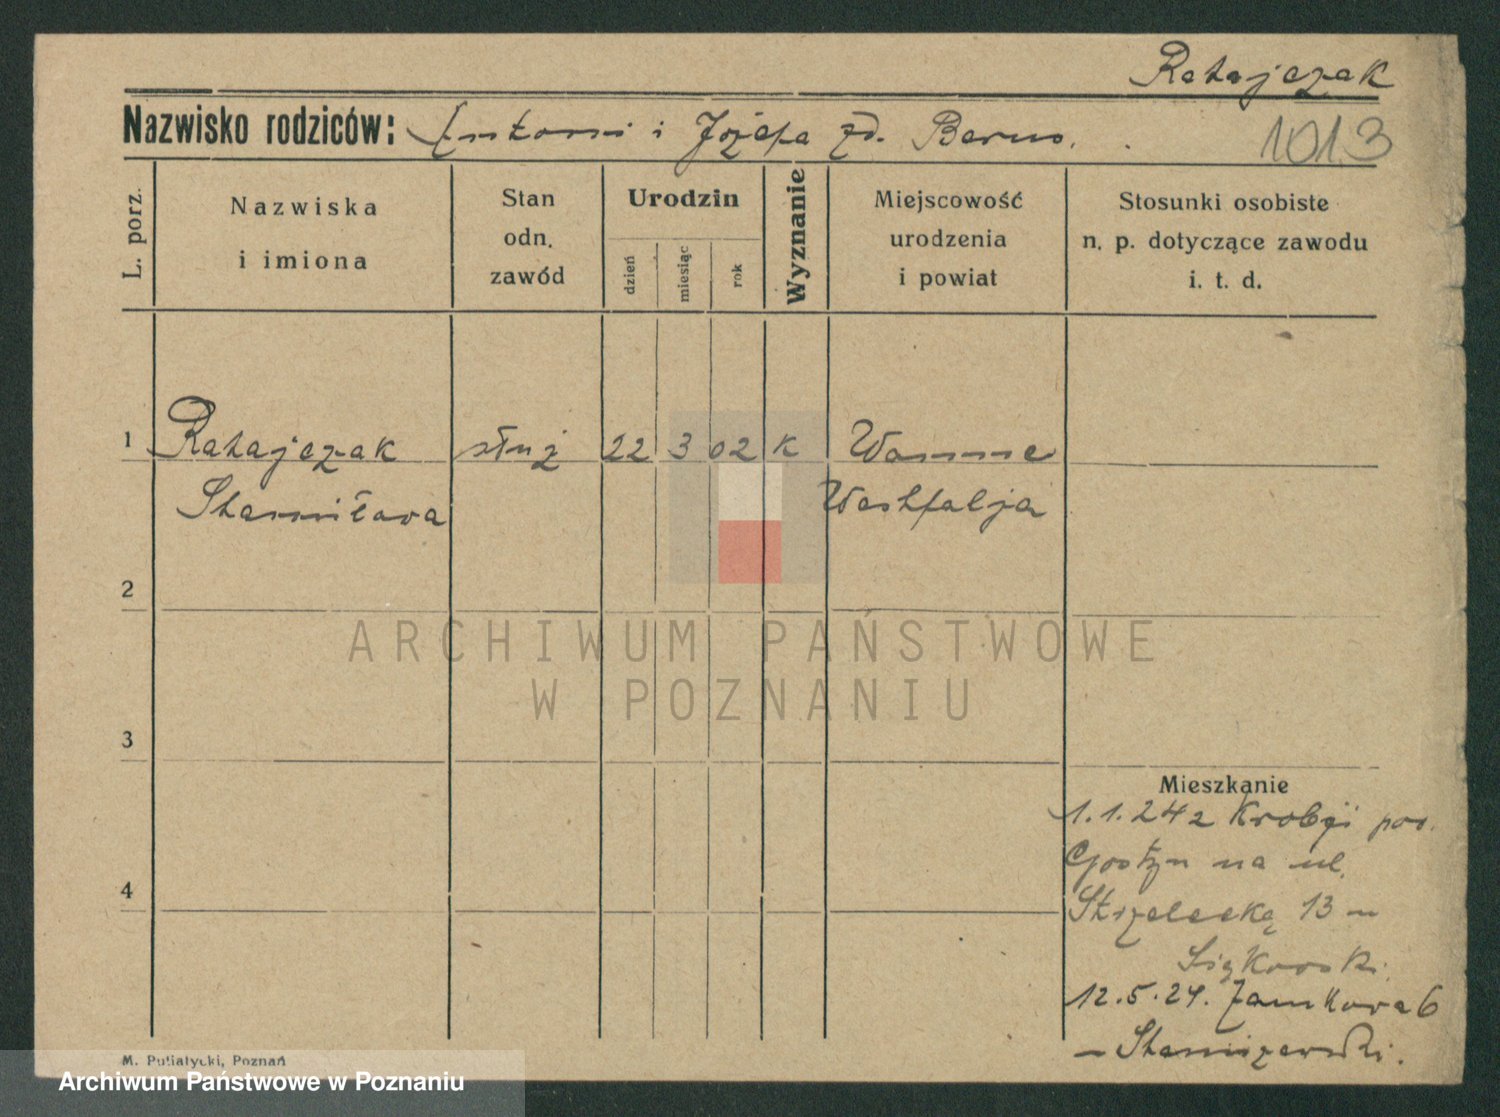 Ratajczak
Nazwisko rodziców: Antoni i Józefa zd. Berus.
1013
L. porz.
Nazwiska
i imiona
Stan
odn.
zawód
Urodzin
dzień
miesiąc
rok
Wyznanie
Miejscowość
urodzenia
i powiat
Stosunki osobiste
n. p. dotyczące zawodu
i. t. d.
1 Ratajczak służ 22 3 02 K Wanne
Stanisława Westfalja
2
ARCHIWUM PAŃSTWOWE
W POZNANIU
3
Mieszkanie
1.1.24 z Krobji pow.
Gostyn na ul.
4
Strzelecką 13 –
12.5.24. Zamkowa 6
– Staniszewski.
M. Putiatycki, Poznań
Archiwum Państwowe w Poznaniu